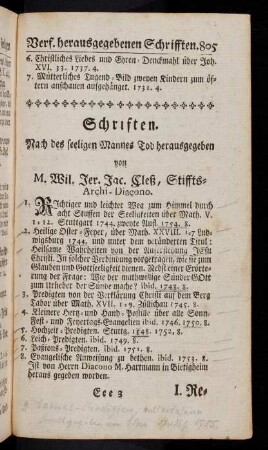 Verf. herausgegebenen Schrifften. 805
6. Christliches Liebes und Ehren-Denckmahl über Joh.
XVI. 33. 1737. 4.
7. Mütterliches Tugend-Bild zweyen Kindern zum öf-
tern anschauen aufgehänget. 1731. 4.
Schriften.
Nach des seeligen Mannes Tod herausgegeben
von
M. Wil. Jer. Jac. Cleß, Stiffts-
Archi-Diacono.
1. Richtiger und leichter Weg zum Himmel durch
acht Stuffen der Seeligkeiten über Math. V.
1-12. Stuttgart 1744. zweyte Aufl. 1754. 8.
2. Heilige Oster-Feyer, über Math. XXVIII. 1-7 Lud-
wigsburg 1744. und unter dem veränderten Titul:
Heilsame Wahrheiten von der Auferstehung JEsu
Christi. In solcher Verbindung vorgetragen, wie sie zum
Glauben und Gottseeligkeit dienen. Nebst einer Erörte-
rung der Frage: Wie der muthwillige Sünder GOtt
zum Urheber der Sünde mache? ibid. 1748. 8.
3. Predigten von der Verklärung Christi auf dem Berg
Tabor über Math. XVII. 1-9. Züllichau 1745. 8.
4. Kleinere Hertz- und Hand-Postille über alle Sonn-
Fest- und Feyertags-Evangelien ibid. 1746. 1750. 8.
5. Hochzeit-Predigten. Stuttg. 1748. 1752. 8.
6. Leich-Predigten. ibid. 1749. 8.
7. Paßions-Predigten. ibid. 1751. 8.
8. Evangelische Anweisung zu bethen. ibid. 1753. 8.
Ist von Herrn Diacono M. Hartmann in Bietigheim
heraus gegeben worden.
Eee 3 I. Re-